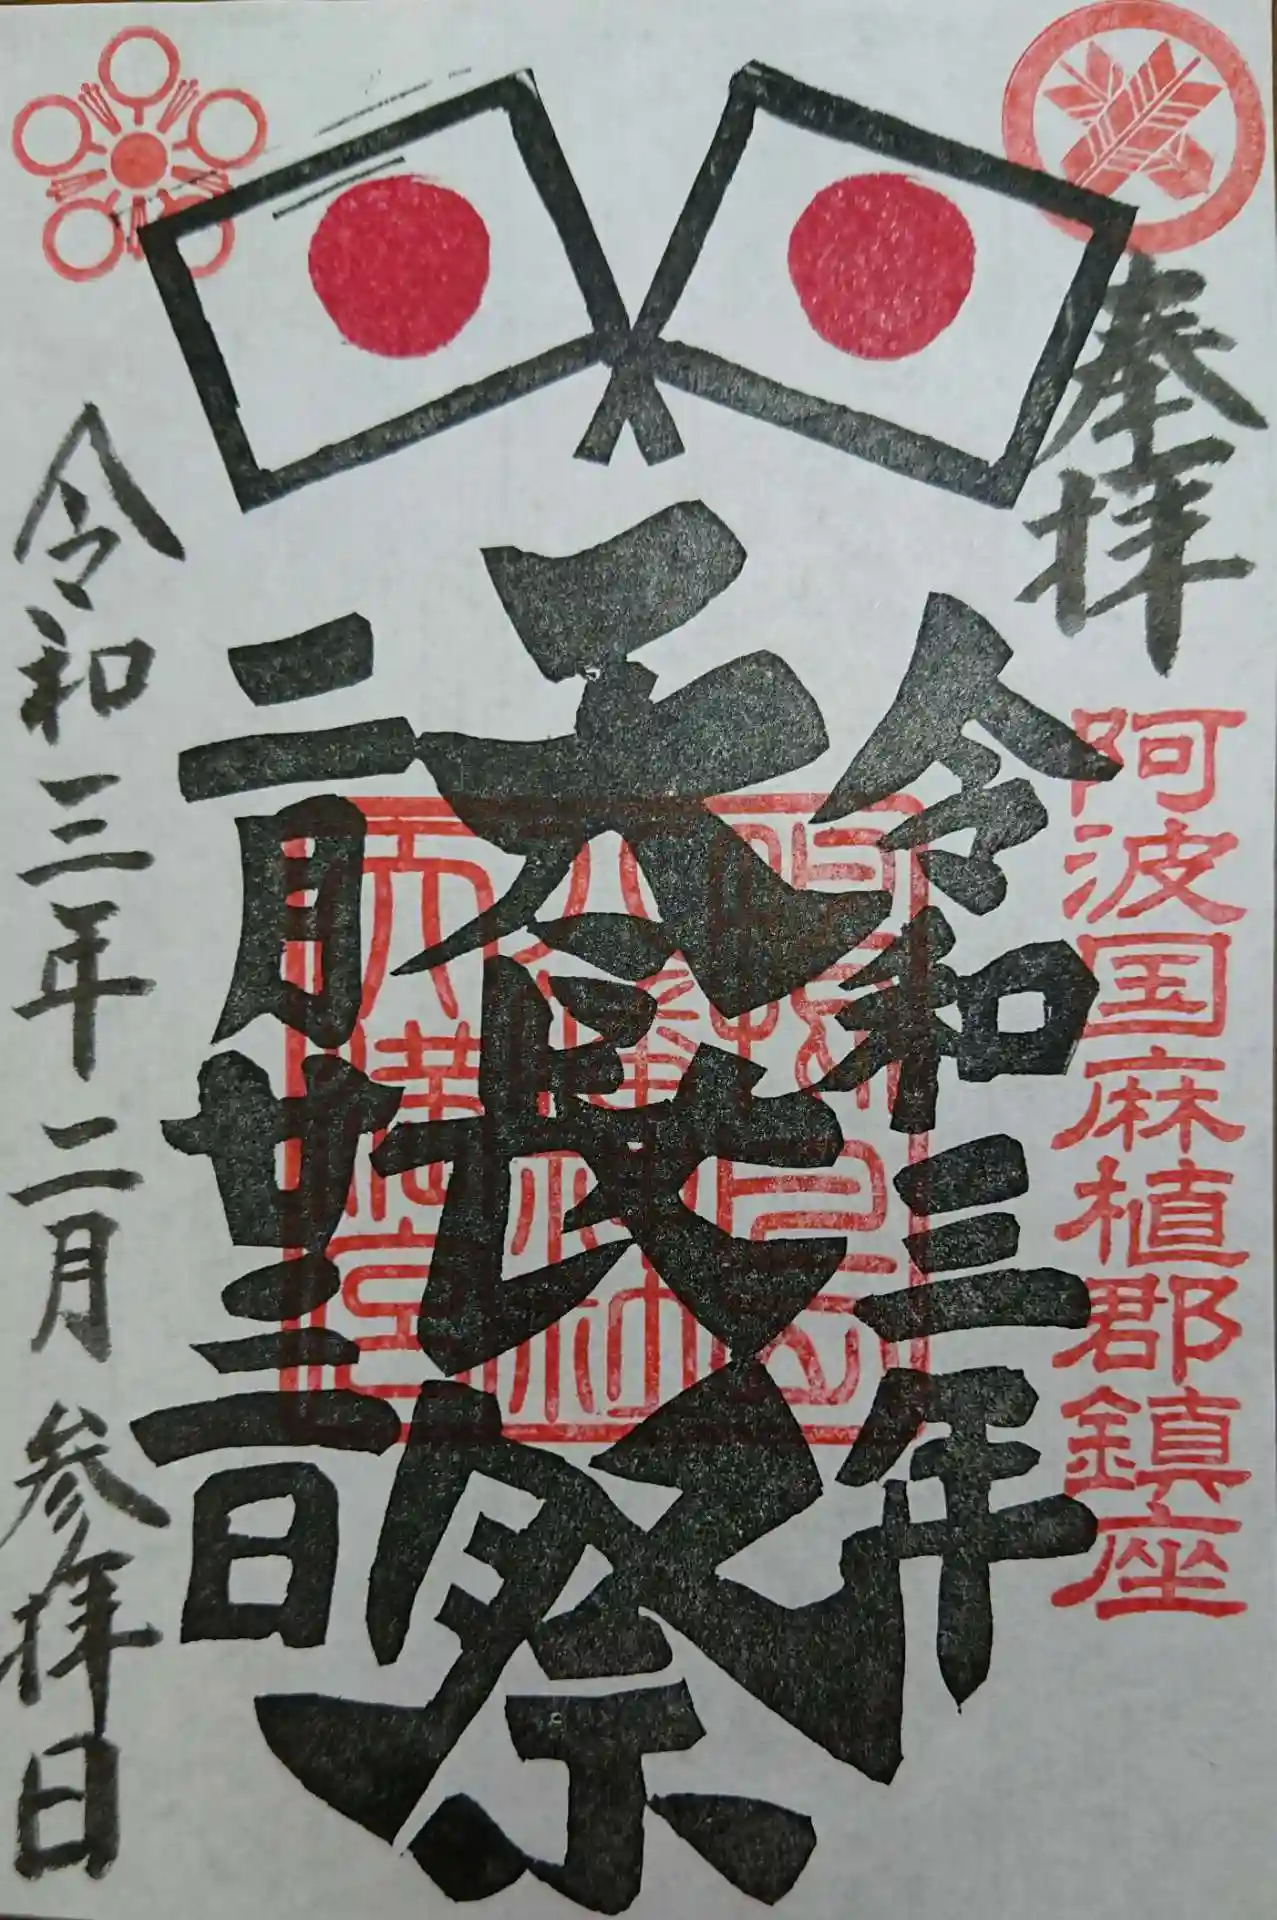 奉拝
阿波国麻植郡鎮座
令和三年
天長祭
二月廿三日
八幡神社
天満宮
令和三年二月参拝日